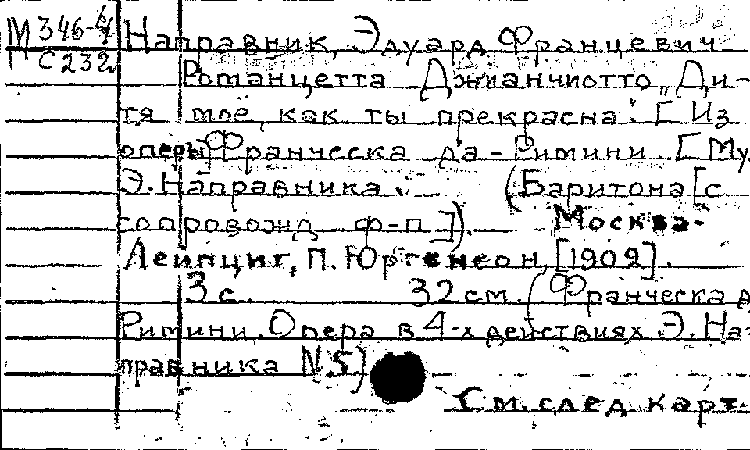 М 346-4/4 Направник, Эдуард Францевич
П С232
Романцетта Джианчиотто „Ди-
тя моё, как ты прекрасна". [Из
оперы Франческа да-Римини. [Му
Э. Направника. (Баритона [с
сопровожд ф-п.]). Москва-
Лейпциг, П. Юргенсон, [1902].
3 с. 32 см. (Франческа д
Римини. Опера в 4-х действиях Э. На-
правника N.5)
См. след. карт.